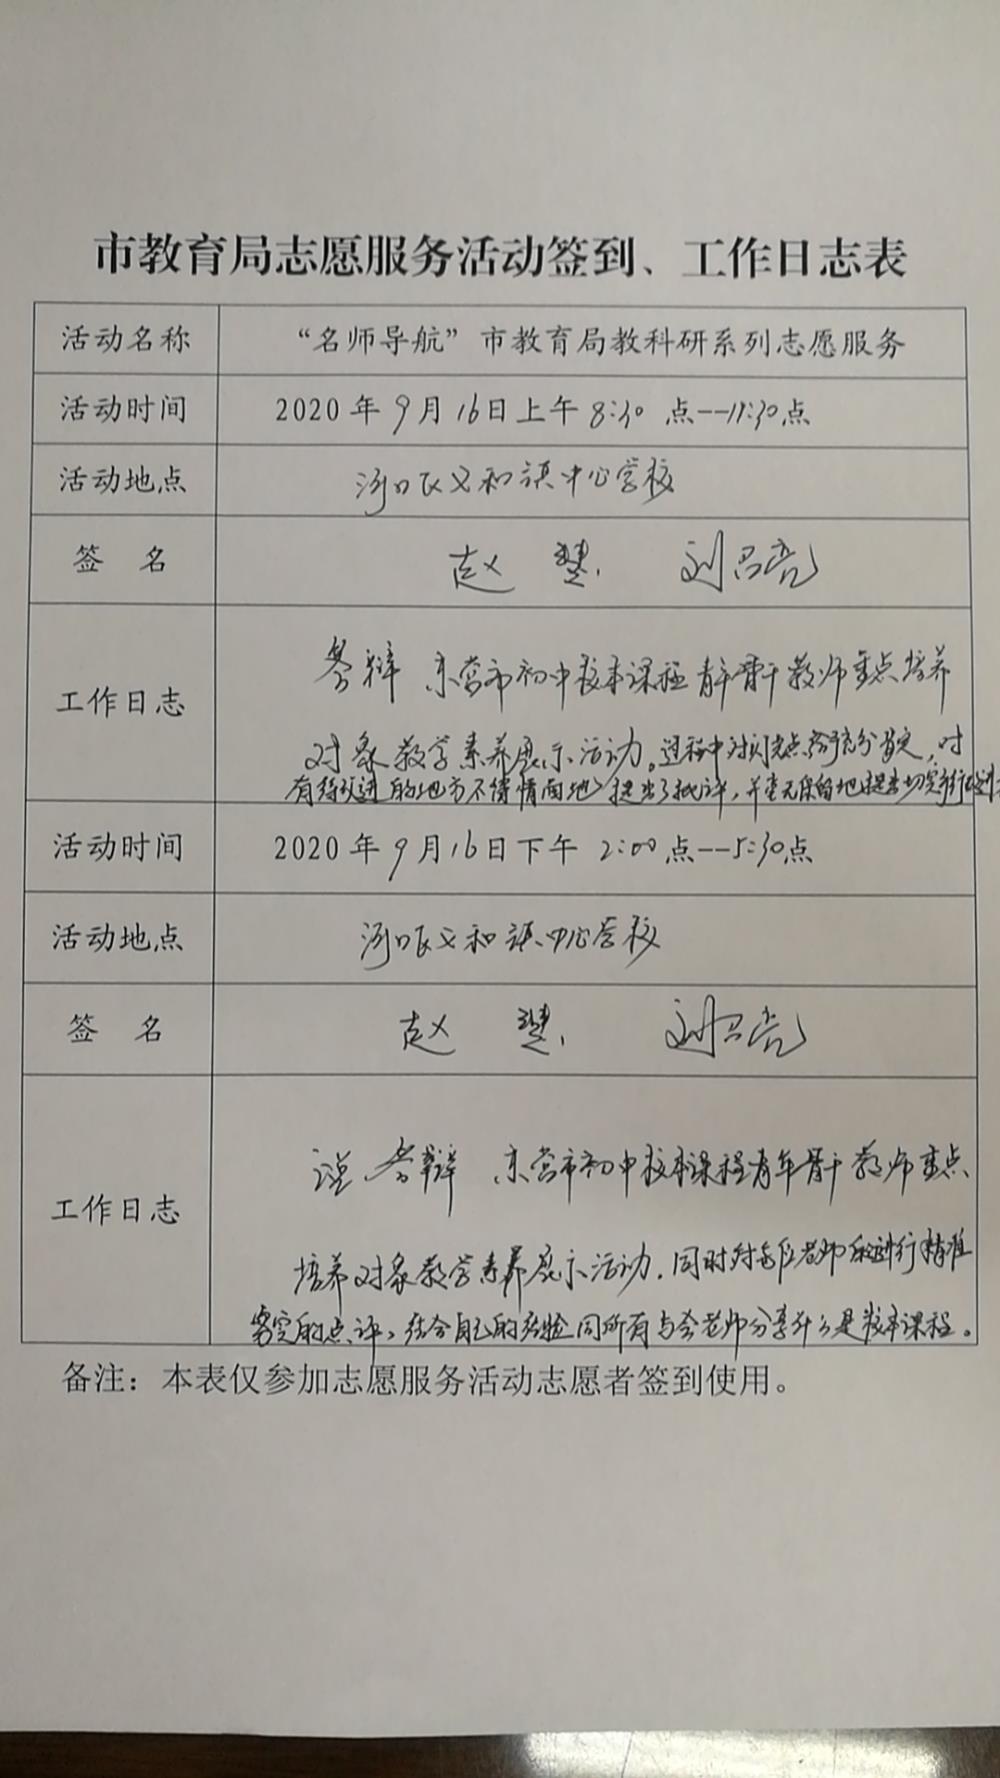 市教育局志愿服务活动签到、工作日志表
活动名称 “名师导航”市教育局教科研系列志愿服务
活动时间 2020年9月16日上午8:30点--11:30点
活动地点 河口区义和镇中心学校
签 名 赵 慧 刘召亮
答辩 东营市初中校本课程青年骨干教师重点培养
工作日志
对象教学素养展示活动。过程中对闪光点给予充分肯定,对
有待改进的地方不停情面地提出了批评,并毫无保留地提出切实可行
活动时间 2020年9月16日下午2:00点--5:30点
活动地点 河口区义和镇中心学校
签 名 赵 慧 刘召亮
答辩 东营市初中校本课程青年骨干教师重点
工作日志
培养对象教学素养展示活动,同时对每位老师 进行精准
客定的点评,结合自己的实验同所有与会老师分享什么是校本课程。
备注:本表仅参加志愿服务活动志愿者签到使用。